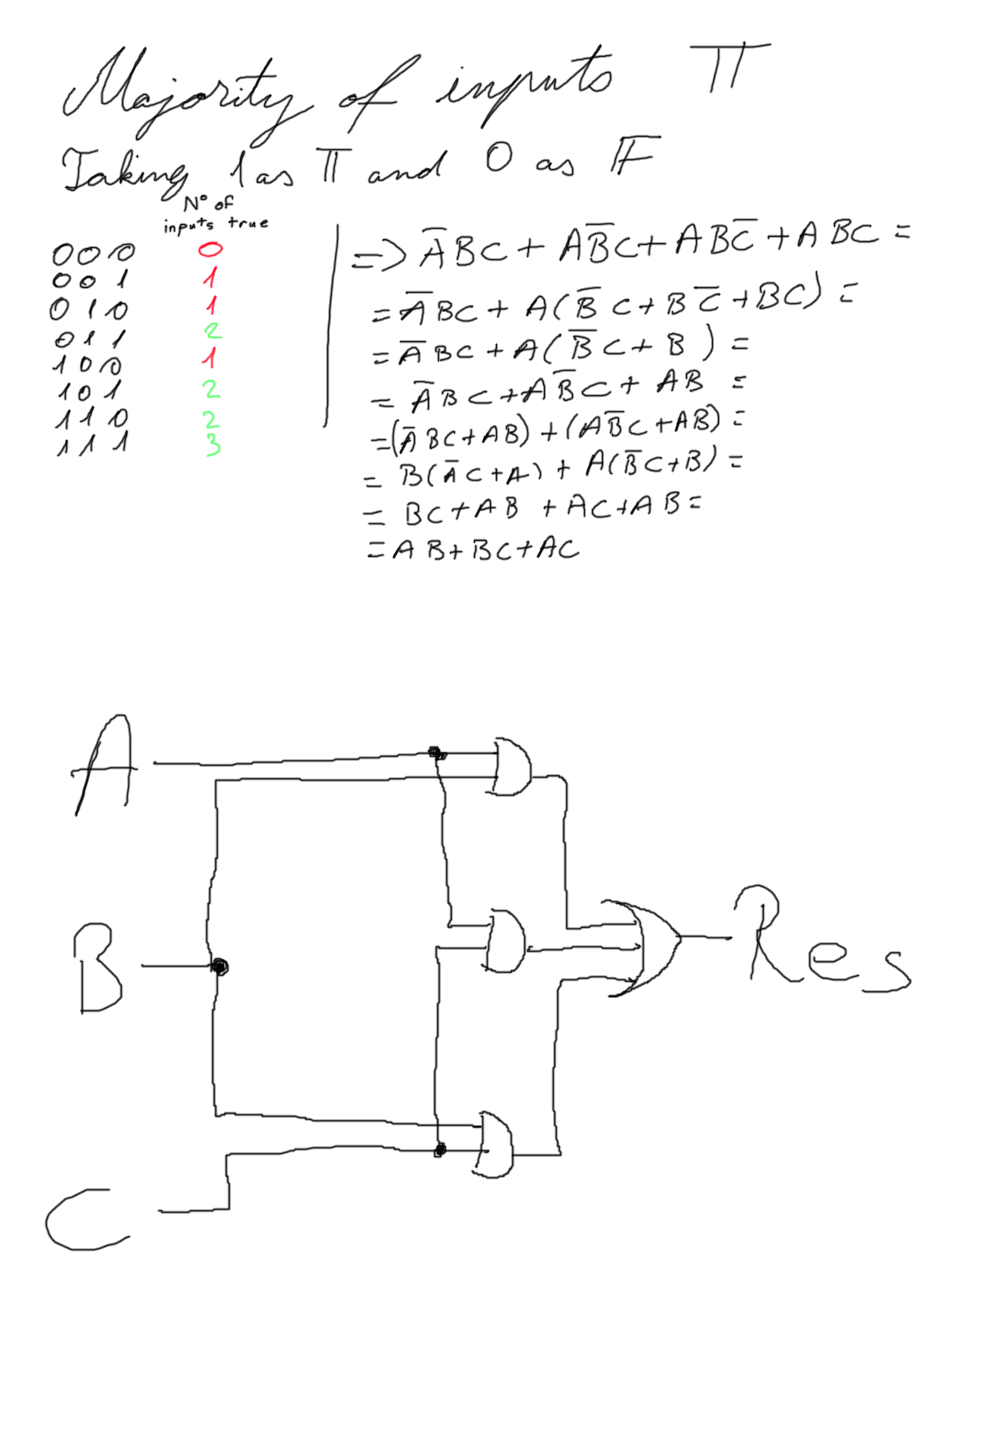 Majority of inputs 𝕋
Taking 1 as 𝕋 and 0 as 𝔽
N° of
inputs true
000 0
001 1
010 1
011 2
100 1
101 2
110 2
111 3
=> A̅BC + AB̅C + ABC̅ + ABC =
= A̅BC + A(B̅C + BC̅ + BC) =
= A̅BC + A(B̅C + B) =
= A̅BC + AB̅C + AB =
= (A̅BC + AB) + (AB̅C + AB) =
= B(A̅C + A) + A(B̅C + B) =
= BC + AB + AC + AB =
= AB + BC + AC
A
B
Res
C